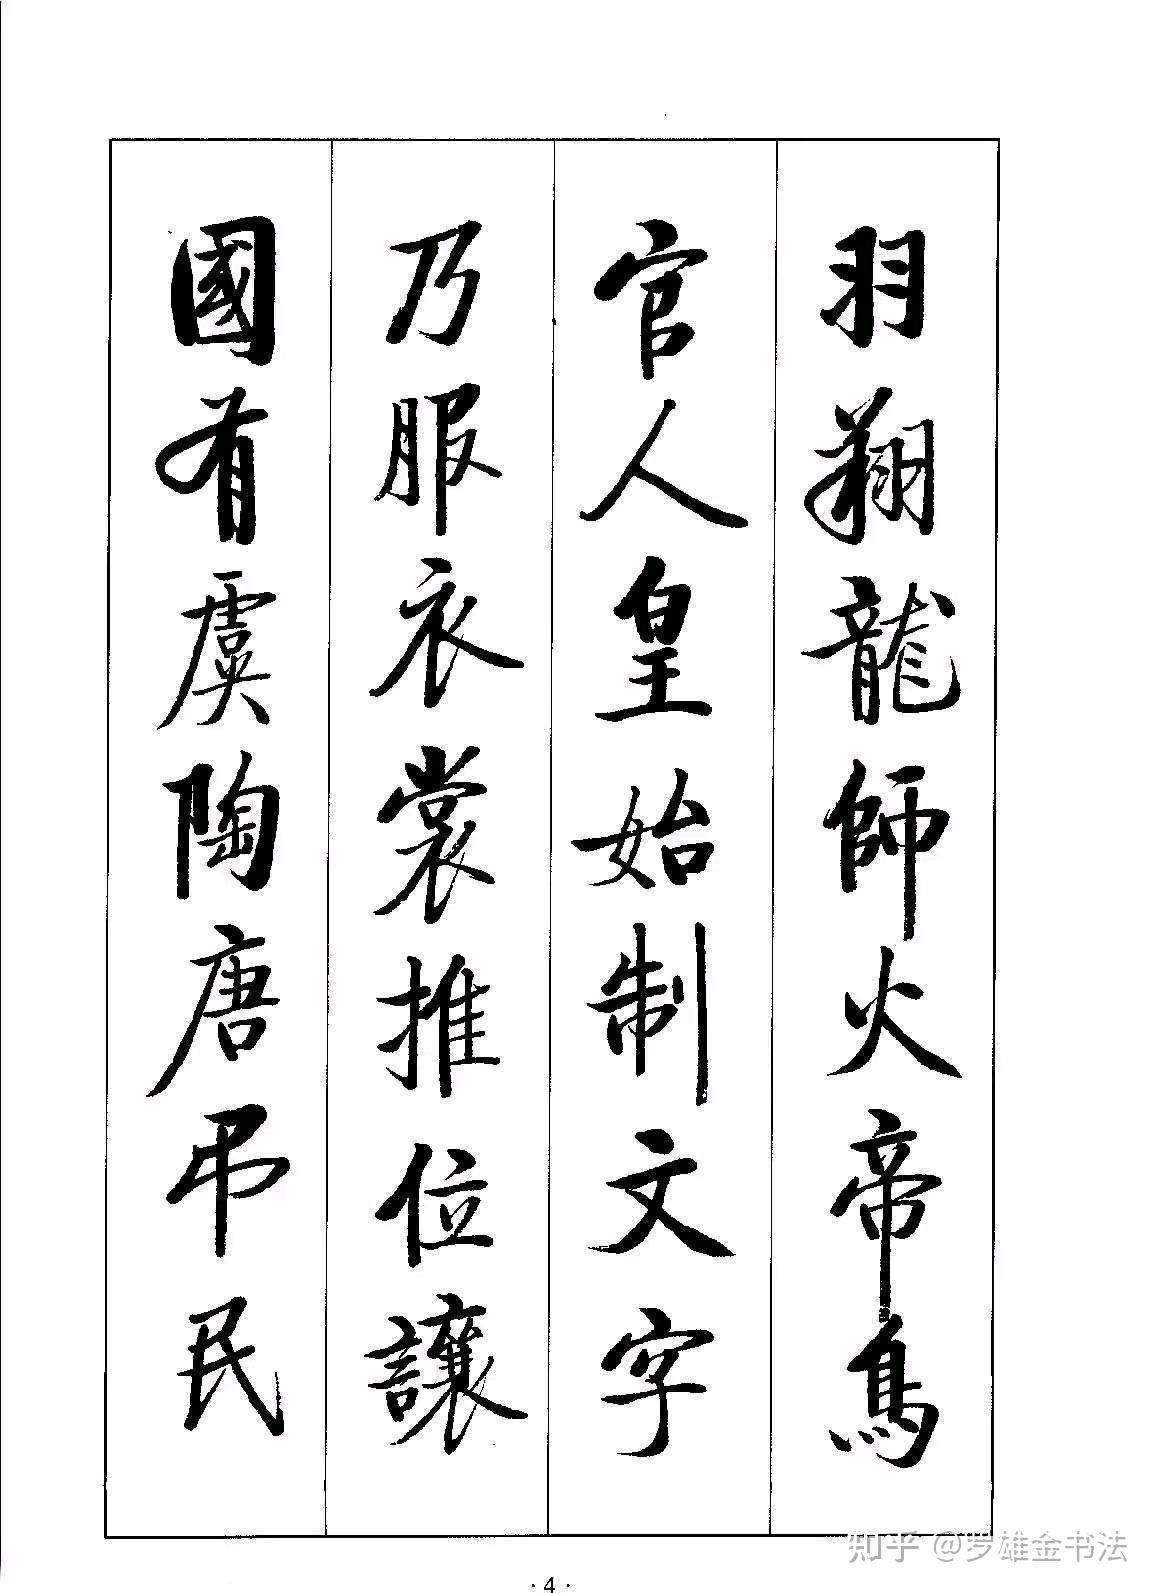 羽翔龍師火帝鳥
官人皇始制文字
乃服衣裳推位讓
國有虞陶唐弔民
知乎 @罗雄金书法
· 4 ·